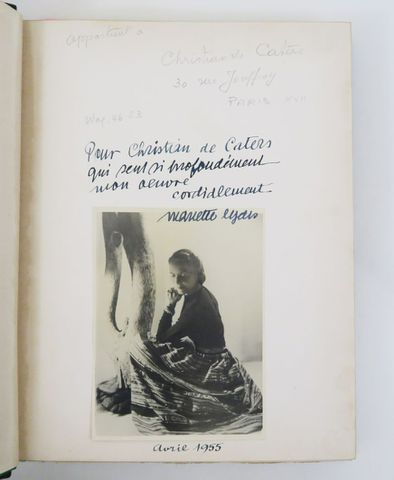 appartient à
Christian de Caters
30 rue Jouffroy
PARIS XVII
Wag. 46 53
Pour Christian de Caters
qui sent si profondément
mon oeuvre
cordialement
mariette lydis
Avril 1955